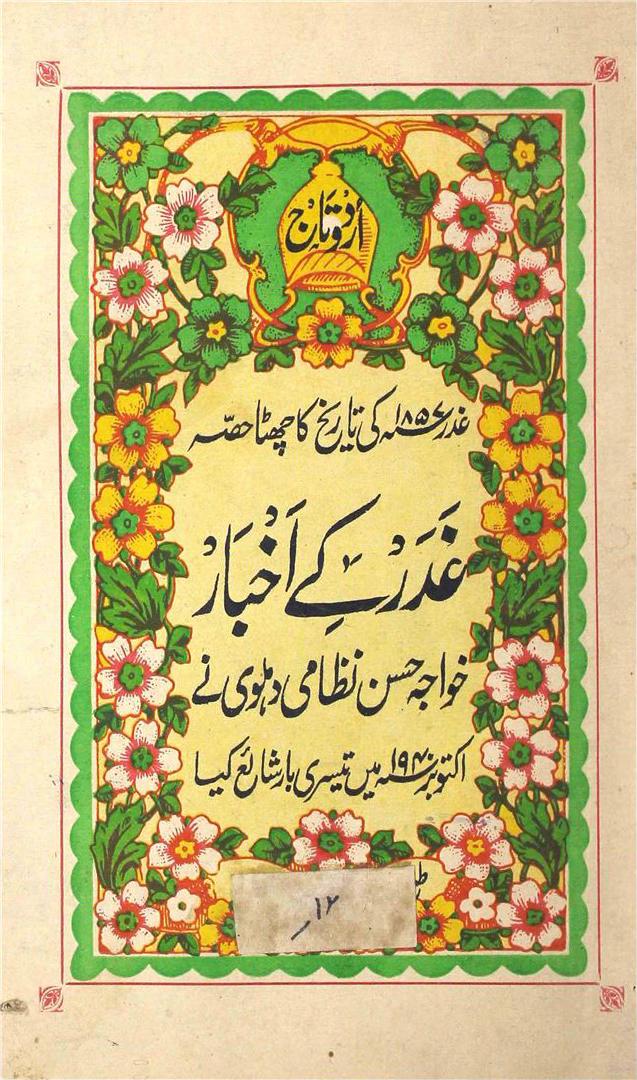 اُردُو تاج
غدر ۱۸۵۷ء کی تاریخ کا چھٹا حصّہ
غَدَر کے اَخْبَار
خواجہ حسن نظامی دہلوی نے
اکتوبر ۱۹۴۰ء میں تیسری بار شائع کیا
۱۲؍